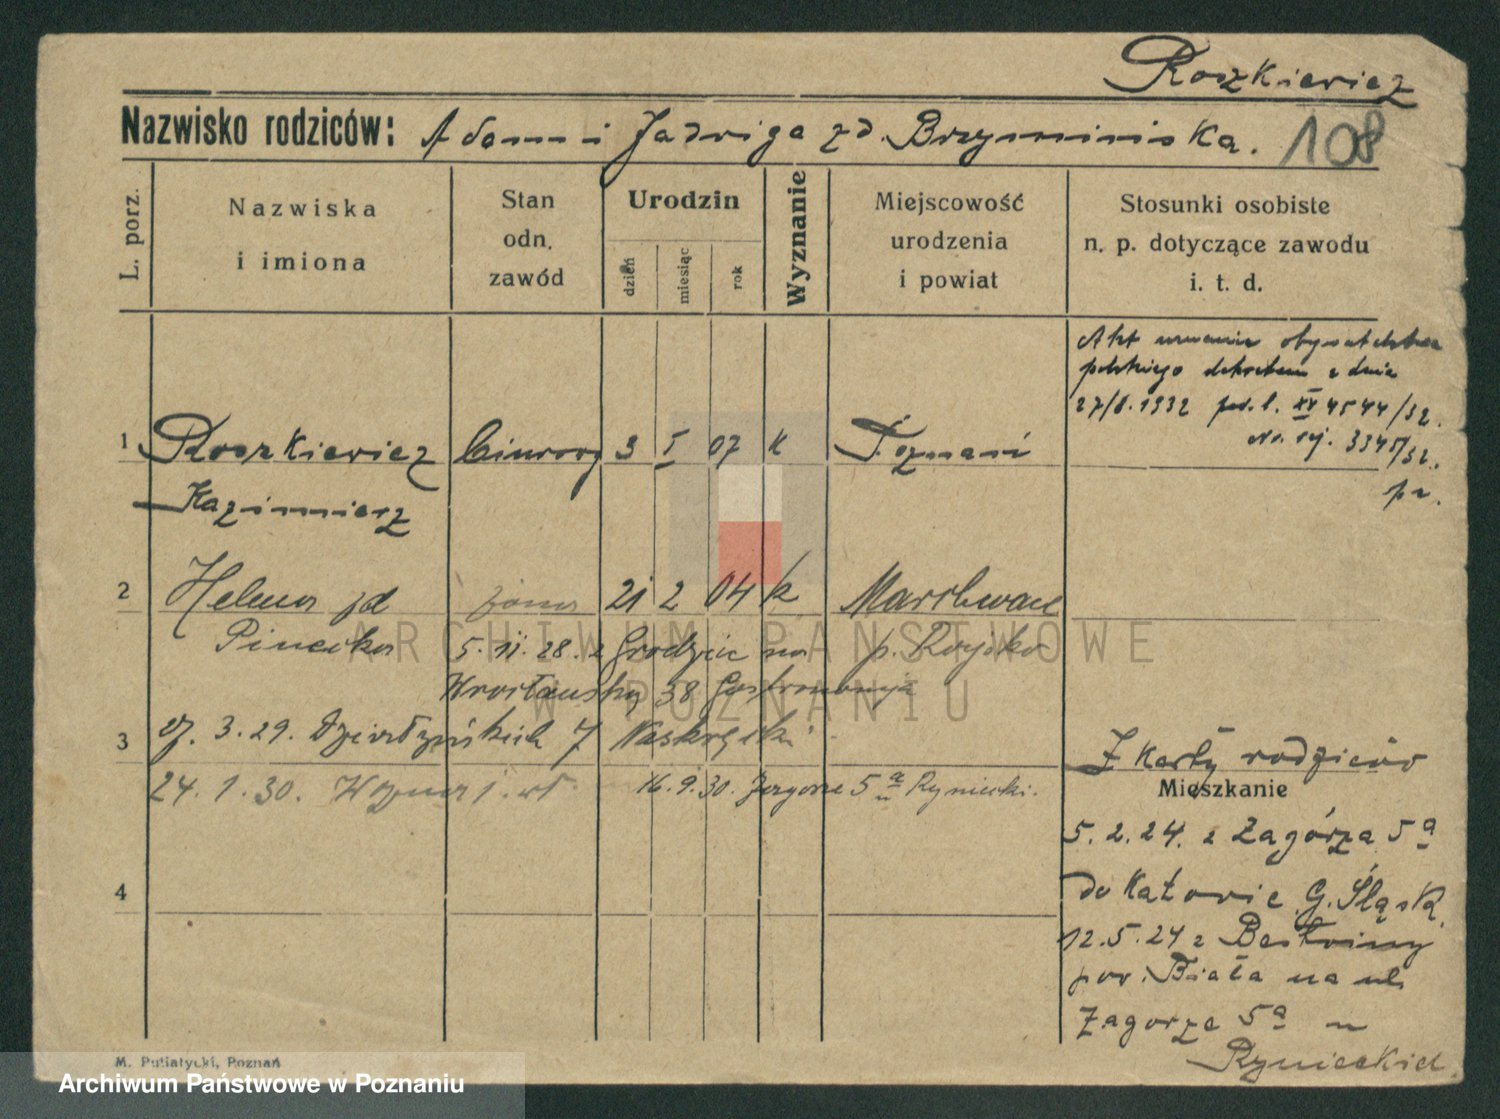 Roszkiewicz
Nazwisko rodziców: Adam i Jadwiga zd. Brzymińska.
108
L. porz.
Nazwiska
i imiona
Stan
odn.
zawód
Urodzin
dzień
miesiąc
rok
Wyznanie
Miejscowość
urodzenia
i powiat
Stosunki osobiste
n. p. dotyczące zawodu
i. t. d.
Akt uznania obywatelstwa
polskiego dekretem z dnia
27/8.1932 l. XV 4544/32.
No. rej. 3345/32.
1 Roszkiewicz biurowy 3 I 07 k Poznań
Kazimierz
2 Helena zd żona 21 2 04 k
Pinecka
5.11.28. z Grodzic na p.
Wrocławską 38 Gastronomja
3 3.29. 7 Naskręcki
24.1.30. 16.9.30. Zagorze 5a u Ryniecki.
Z Karty rodziców
Mieszkanie
5.2.24. z Zagórza 5a
do Katowic G. Śląsk.
12.5.24 z Bestwiny
pow. Biała na ul.
Zagorze 5a u
Rynieckich
4
M. Putiatycki, Poznań
ARCHIWUM PAŃSTWOWE
W POZNANIU
Archiwum Państwowe w Poznaniu